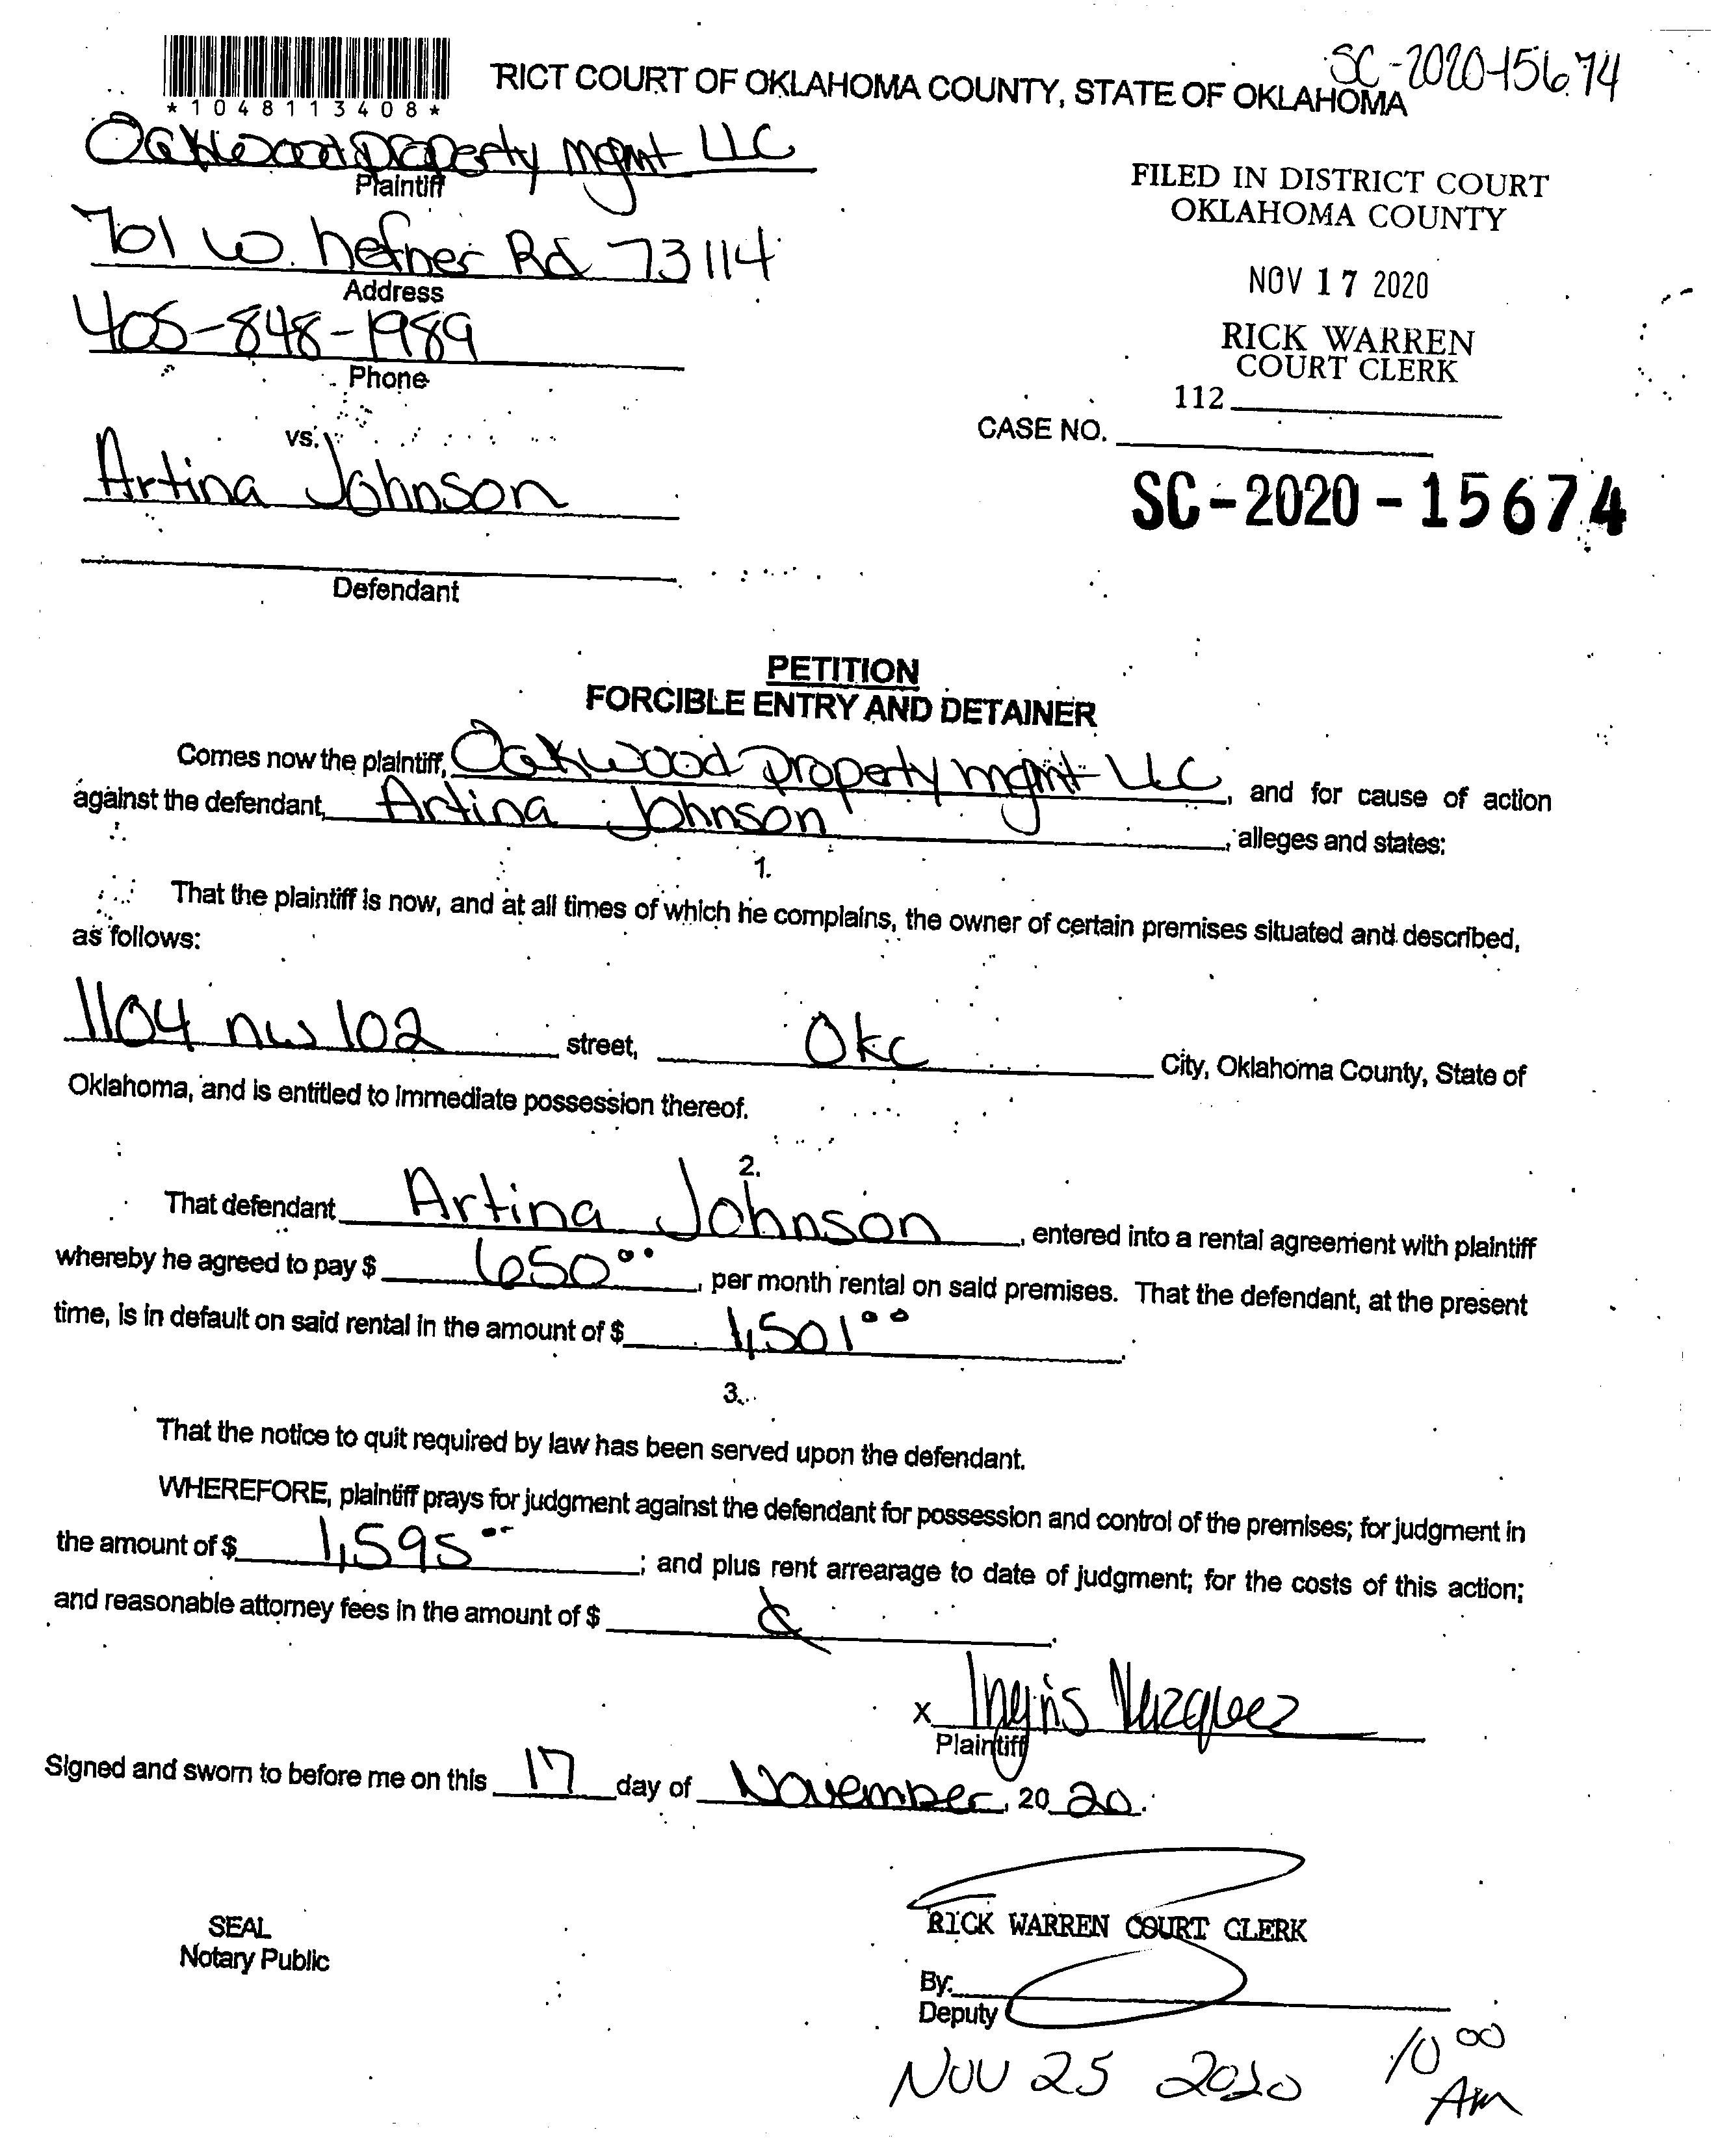 SC-2020-15674
RICT COURT OF OKLAHOMA COUNTY, STATE OF OKLAHOMA
*1048113408*
Oakwood Property mgmt LLC
Plaintiff
701 W. hefner Rd 73114
Address
405-848-1989
Phone
FILED IN DISTRICT COURT
OKLAHOMA COUNTY
NOV 17 2020
RICK WARREN
COURT CLERK
112
vs.
CASE NO.
Artina Johnson
SC-2020-15674
Defendant
PETITION
FORCIBLE ENTRY AND DETAINER
Comes now the plaintiff, Oakwood property mgmt LLC, and for cause of action
against the defendant, Artina Johnson, alleges and states:
1.
That the plaintiff is now, and at all times of which he complains, the owner of certain premises situated and described,
as follows:
1104 nw 102 street, Okc City, Oklahoma County, State of
Oklahoma, and is entitled to immediate possession thereof.
2.
That defendant Artina Johnson, entered into a rental agreement with plaintiff
whereby he agreed to pay $ 650.00, per month rental on said premises. That the defendant, at the present
time, is in default on said rental in the amount of $ 1,501.00.
3.
That the notice to quit required by law has been served upon the defendant.
WHEREFORE, plaintiff prays for judgment against the defendant for possession and control of the premises; for judgment in
the amount of $ 1,595; and plus rent arrearage to date of judgment; for the costs of this action;
and reasonable attorney fees in the amount of $
x Vazquez
Plaintiff
Signed and sworn to before me on this 17 day of November, 2020.
SEAL
Notary Public
RICK WARREN COURT CLERK
By:
Deputy
NOV 25 2020 10 00
AM